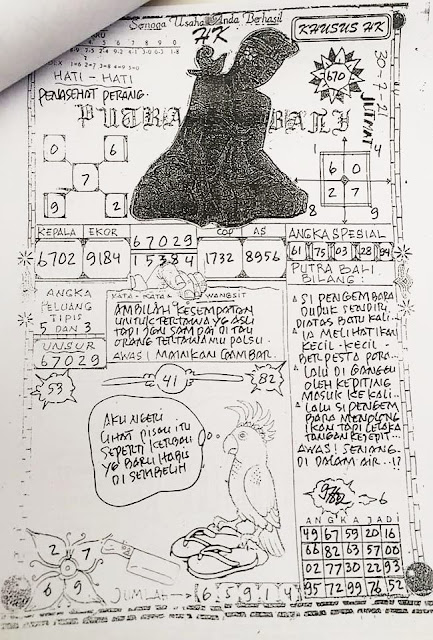 Semoga Usaha Anda Berhasil
HK
KHUSUS HK
5 6 7 8 9 0
HATI - HATI
PENASEHAT PERANG.
PUTRA BALI
7670
30-7-21
JUM'AT
0 6
7
9 2
1 4
6 0
2 7
8 9
KEPALA EKOR 67029 COP AS
6702 9184 15384 1732 8956
ANGKA SPESIAL
61 75 03 28 94
ANGKA
PELUANG
TIPIS
5 DAN 3
UNSUR
67029
KATA - KATA WANGSIT
AMBILAH KESEMPATAN
UNTUK TERTAWA YG ASLI
TAPI JGN SAMPAI DI TAU
ORANG TERTAWAMU PALSU.
AWAS! MAINKAN GAMBAR.
53 41 82
PUTRA BALI
BILANG:
SI PENGEMBARA
DUDUK SENDIRI,
DIATAS BATU KALI..
IA MELIHAT IKAN
KECIL - KECIL -
BERPESTA PORA...
LALU DI GANGGU
OLEH KEPITING
MASUK KE KALI...
LALU SI PENGEM
BARA MENOLONG
IKAN TAPI CELAKA
TANGAN KEJEPIT...
AWAS! SENANG
DI DALAM AIR...!?
AKU NGERI
LIHAT PISAU ITU
SEPERTI KERBAU
YG BARU HABIS
DI SEMBELIH
6
ANGKA JADI
49 67 59 20 16
66 82 63 57 00
02 77 30 22 93
95 72 99 76 52
2 7
6 9
JUMLAH → 6 5 9 1 4